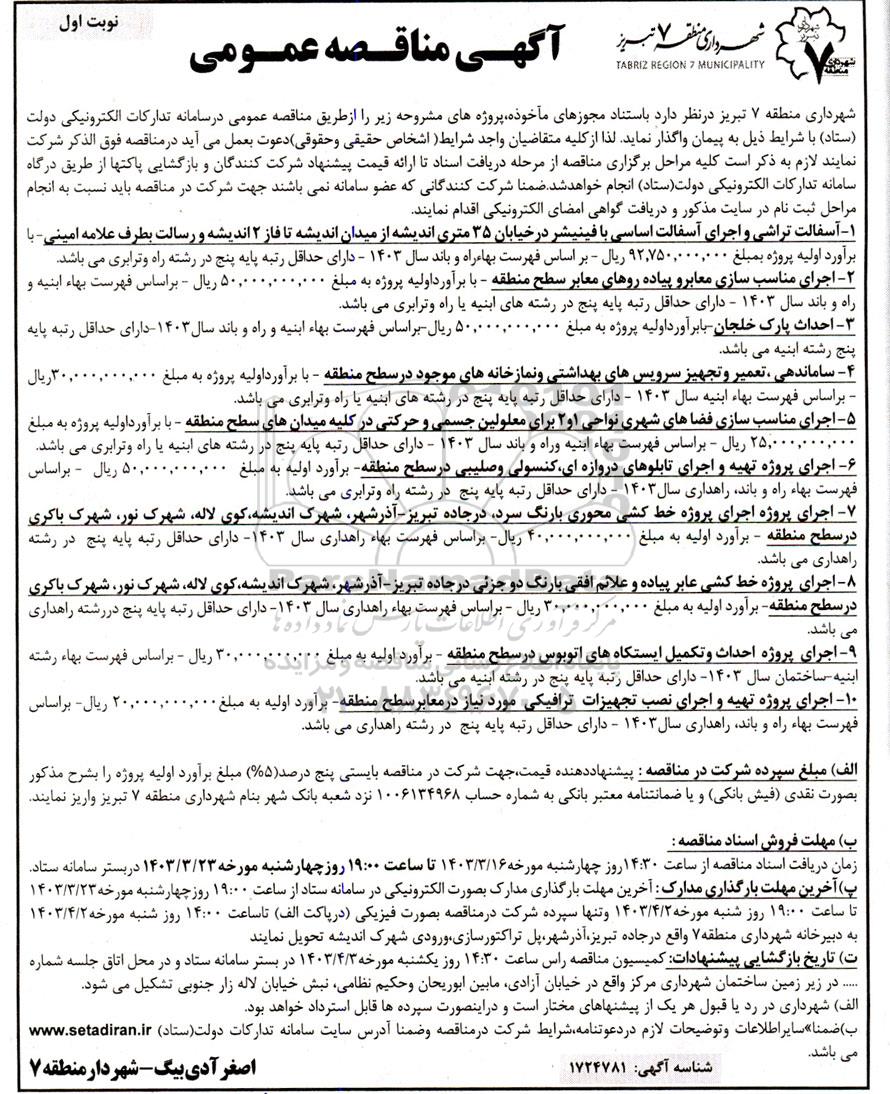 نوبت اول
شهرداری منطقه ۷ تبریز
TABRIZ REGION 7 MUNICIPALITY
شهرداری منطقه ۷
آگهـی مناقـصه عمـومی
شهرداری منطقه ۷ تبریز درنظر دارد باستناد مجوزهای مأخوذه،پروژه های مشروحه زیر را ازطریق مناقصه عمومی درسامانه تدارکات الکترونیکی دولت
(ستاد) با شرایط ذیل به پیمان واگذار نماید. لذا ازکلیه متقاضیان واجد شرایط( اشخاص حقیقی وحقوقی)دعوت بعمل می آید درمناقصه فوق الذکر شرکت
نمایند لازم به ذکر است کلیه مراحل برگزاری مناقصه از مرحله دریافت اسناد تا ارائه قیمت پیشنهاد شرکت کنندگان و بازگشایی پاکتها از طریق درگاه
سامانه تدارکات الکترونیکی دولت(ستاد) انجام خواهدشد.ضمنا شرکت کنندگانی که عضو سامانه نمی باشند جهت شرکت در مناقصه باید نسبت به انجام
مراحل ثبت نام در سایت مذکور و دریافت گواهی امضای الکترونیکی اقدام نمایند.
۱-آسفالت تراشی و اجرای آسفالت اساسی با فینیشر درخیابان ۳۵ متری اندیشه از میدان اندیشه تا فاز ۲ اندیشه و رسالت بطرف علامه امینی- با
برآورد اولیه پروژه بمبلغ ۹۲,۷۵۰,۰۰۰,۰۰۰ ریال - بر اساس فهرست بهاءراه و باند سال ۱۴۰۳ - دارای حداقل رتبه پایه پنج در رشته راه وترابری می باشد.
۲- اجرای مناسب سازی معابرو پیاده روهای معابر سطح منطقه - با برآورداولیه پروژه به مبلغ ۵۰,۰۰۰,۰۰۰,۰۰۰ ریال - براساس فهرست بهاء ابنیه و
راه و باند سال ۱۴۰۳ - دارای حداقل رتبه پایه پنج در رشته های ابنیه یا راه وترابری می باشد.
۳- احداث پارک خلجان-بابرآورداولیه پروژه به مبلغ ۵۰,۰۰۰,۰۰۰,۰۰۰ ریال-براساس فهرست بهاء ابنیه و راه و باند سال۱۴۰۳-دارای حداقل رتبه پایه
پنج رشته ابنیه می باشد.
۴- ساماندهی ،تعمیر وتجهیز سرویس های بهداشتی ونمازخانه های موجود درسطح منطقه - با برآورداولیه پروژه به مبلغ ۳۰,۰۰۰,۰۰۰,۰۰۰ریال
- براساس فهرست بهاء ابنیه سال ۱۴۰۳ - دارای حداقل رتبه پایه پنج در رشته های ابنیه یا راه وترابری می باشد.
۵- اجرای مناسب سازی فضا های شهری نواحی ۱و۲ برای معلولین جسمی و حرکتی در کلیه میدان های سطح منطقه - با برآورداولیه پروژه به مبلغ
۲۵,۰۰۰,۰۰۰,۰۰۰ ریال - براساس فهرست بهاء ابنیه وراه و باند سال ۱۴۰۳ - دارای حداقل رتبه پایه پنج در رشته های ابنیه یا راه وترابری می باشد.
۶- اجرای پروژه تهیه و اجرای تابلوهای دروازه ای،کنسولی وصلیبی درسطح منطقه- برآورد اولیه به مبلغ ۵۰,۰۰۰,۰۰۰,۰۰۰ ریال - براساس
فهرست بهاء راه و باند، راهداری سال۱۴۰۳ - دارای حداقل رتبه پایه پنج در رشته راه وترابری می باشد.
۷- اجرای پروژه اجرای پروژه خط کشی محوری بارنگ سرد، درجاده تبریز-آذرشهر، شهرک اندیشه،کوی لاله، شهرک نور، شهرک باکری
درسطح منطقه - برآورد اولیه به مبلغ ۴۰,۰۰۰,۰۰۰,۰۰۰ ریال- براساس فهرست بهاء راهداری سال ۱۴۰۳- دارای حداقل رتبه پایه پنج در رشته
راهداری می باشد.
۸- اجرای پروژه خط کشی عابر پیاده و علائم افقی بارنگ دو جزئی درجاده تبریز-آذرشهر، شهرک اندیشه،کوی لاله، شهرک نور، شهرک باکری
درسطح منطقه- برآورد اولیه به مبلغ ۳۰,۰۰۰,۰۰۰,۰۰۰ ریال - براساس فهرست بهاء راهداری سال ۱۴۰۳- دارای حداقل رتبه پایه پنج دررشته راهداری
می باشد.
۹- اجرای پروژه احداث وتکمیل ایستگاه های اتوبوس درسطح منطقه - برآورد اولیه به مبلغ ۳۰,۰۰۰,۰۰۰,۰۰۰ ریال - براساس فهرست بهاء رشته
ابنیه-ساختمان سال ۱۴۰۳- دارای حداقل رتبه پایه پنج در رشته ابنیه می باشد.
۱۰- اجرای پروژه تهیه و اجرای نصب تجهیزات ترافیکی مورد نیاز درمعابرسطح منطقه- برآورد اولیه به مبلغ۲۰,۰۰۰,۰۰۰,۰۰۰ ریال- براساس
فهرست بهاء راه و باند، راهداری سال۱۴۰۳ - دارای حداقل رتبه پایه پنج در رشته راهداری می باشد.
الف) مبلغ سپرده شرکت در مناقصه : پیشنهاددهنده قیمت،جهت شرکت در مناقصه بایستی پنج درصد(۵%) مبلغ برآورد اولیه پروژه را بشرح مذکور
بصورت نقدی (فیش بانکی) و یا ضمانتنامه معتبر بانکی به شماره حساب ۱۰۰۶۱۳۴۹۶۸ نزد شعبه بانک شهر بنام شهرداری منطقه ۷ تبریز واریز نمایند.
ب) مهلت فروش اسناد مناقصه :
زمان دریافت اسناد مناقصه از ساعت ۱۴:۳۰روز چهارشنبه مورخه۱۴۰۳/۳/۱۶ تا ساعت ۱۹:۰۰ روزچهارشنبه مورخه۱۴۰۳/۳/۲۳ دربستر سامانه ستاد.
پ)آخرین مهلت بارگذاری مدارک : آخرین مهلت بارگذاری مدارک بصورت الکترونیکی در سامانه ستاد از ساعت ۱۹:۰۰ روزچهارشنبه مورخه۱۴۰۳/۳/۲۳
تا ساعت ۱۹:۰۰ روز شنبه مورخه۱۴۰۳/۴/۲ وتنها سپرده شرکت درمناقصه بصورت فیزیکی (درپاکت الف) تاساعت ۱۴:۰۰ روز شنبه مورخه ۱۴۰۳/۴/۲
به دبیرخانه شهرداری منطقه۷ واقع درجاده تبریز،آذرشهر،پل تراکتورسازی،ورودی شهرک اندیشه تحویل نمایند
ت) تاریخ بازگشایی پیشنهادات: کمیسیون مناقصه راس ساعت ۱۴:۳۰ روز یکشنبه مورخه۱۴۰۳/۴/۳ در بستر سامانه ستاد و در محل اتاق جلسه شماره
..... در زیر زمین ساختمان شهرداری مرکز واقع در خیابان آزادی، مابین ابوریحان وحکیم نظامی، نبش خیابان لاله زار جنوبی تشکیل می شود.
الف) شهرداری در رد یا قبول هر یک از پیشنهاهای مختار است و دراینصورت سپرده ها قابل استرداد خواهد بود.
ب)ضمنا»سایراطلاعات وتوضیحات لازم دردعوتنامه،شرایط شرکت درمناقصه وضمنا آدرس سایت سامانه تدارکات دولت(ستاد) www.setadiran.ir
می باشد.
شناسه آگهی: ۱۷۲۴۷۸۱
اصغر آدی بیگ-شهردار منطقه ۷